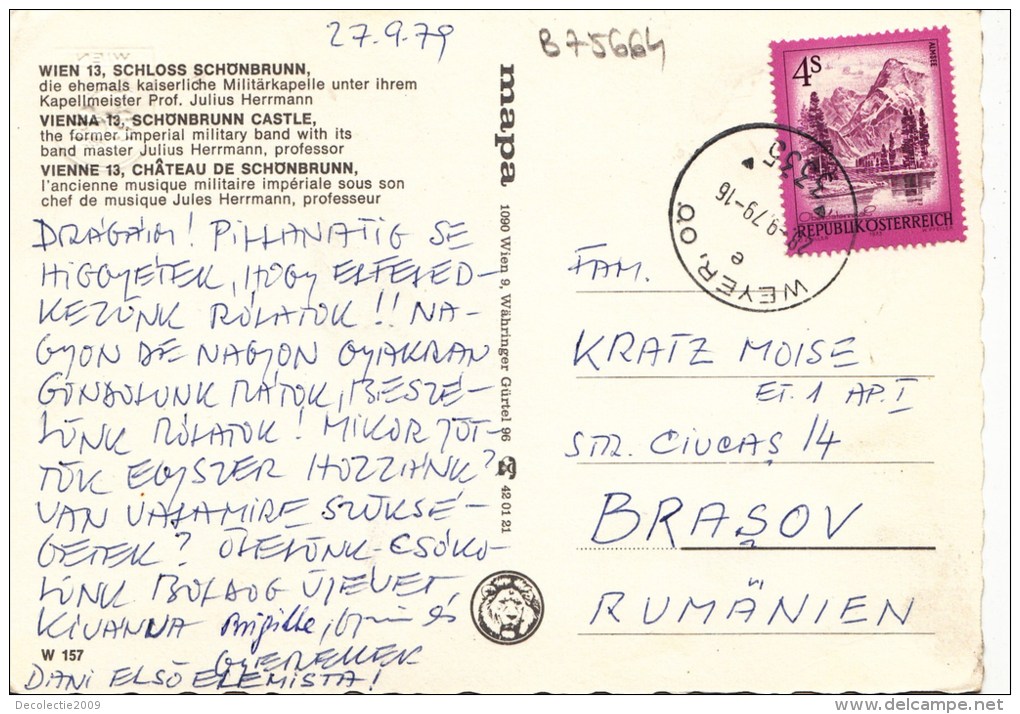 27.9.79
B75664
WIEN 13, SCHLOSS SCHÖNBRUNN,
die ehemals kaiserliche Militärkapelle unter ihrem
Kapellmeister Prof. Julius Herrmann
VIENNA 13, SCHÖNBRUNN CASTLE,
the former imperial military band with its
band master Julius Herrmann, professor
VIENNE 13, CHÂTEAU DE SCHÖNBRUNN,
l'ancienne musique militaire impériale sous son
chef de musique Jules Herrmann, professeur
DRÁGÁIM! PILLANATIG SE
HIGGYÉTEK, HOGY ELFELED-
KEZÜNK RÓLATOK!! NA-
GYON DE NAGYON GYAKRAN
GONDOLUNK RÁTOK, BESZÉ-
LÜNK RÓLATOK! MIKOR JÖT-
TÖK EGYSZER HOZZÁNK?
VAN VALAMIRE SZÜKSÉ-
GETEK? ÖLELÜNK-CSÓKO-
LUNK BOLDOG ÚJÉVET
KIVÁNVA Brigitte, és
GYEREKEK
DANI ELSŐ ELEMISTA!
W 157
mapa
1090 Wien 9, Währinger Gürtel 96
42 01 21
4S
ALMSEE
REPUBLIK ÖSTERREICH
WEYER, O.Ö.
3335
-9.79-16
e
FAM.
KRATZ MOISE
ET. 1 AP. I
STR. CIUCAŞ 14
BRAŞOV
RUMÄNIEN
Decolectie2009
delcampe.net